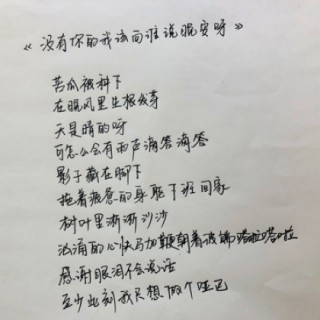 《没有你的我该向谁说晚安呀》
苦瓜被种下
在晚风里生根发芽
天是晴的呀
可怎么会有雨声滴答滴答
影子藏在脚下
拖着疲惫的身躯下班回家
树叶里淅淅沙沙
汹涌的心快马加鞭朝着彼端踏啦嗒啦
感谢眼泪不会说话
至少此刻我只想做个哑巴